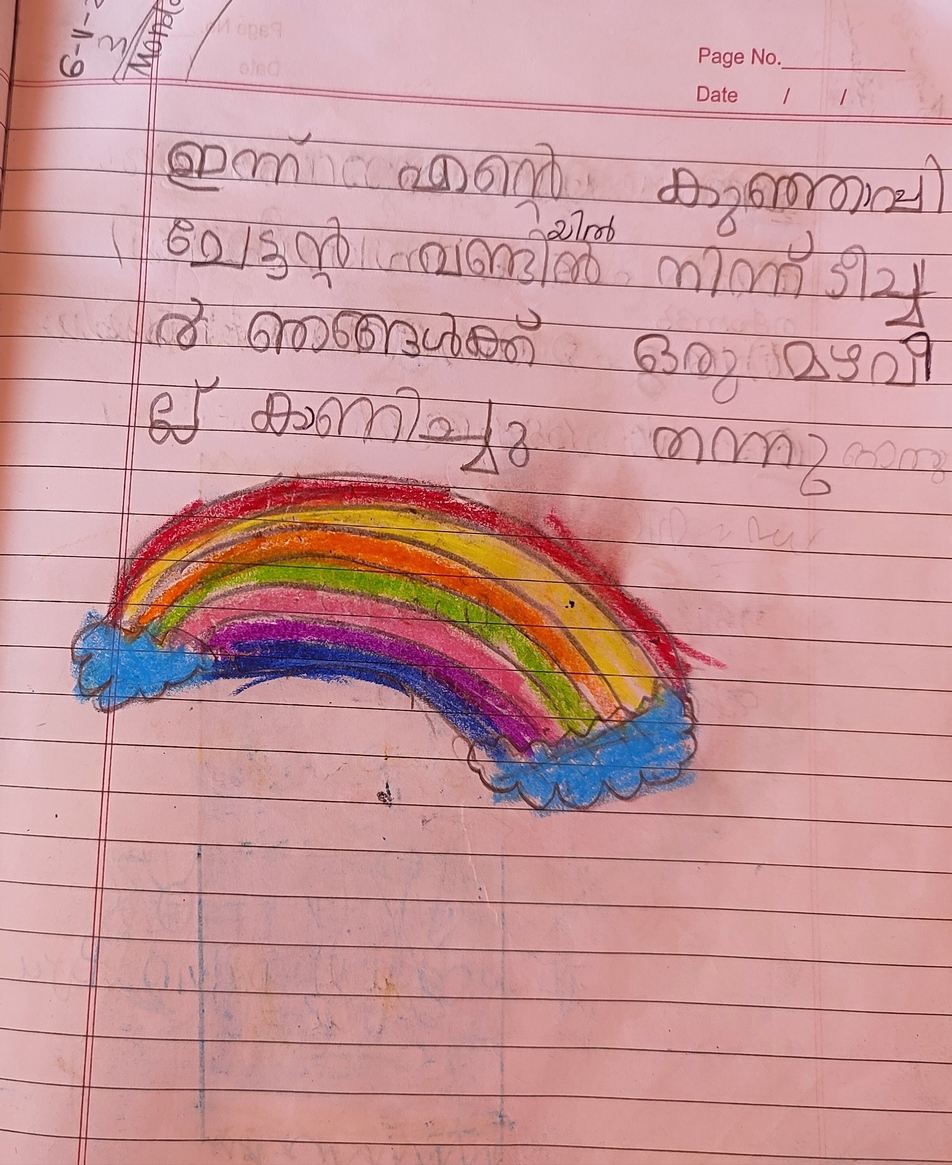 6-11-2
3
Monda
Page No.
Date / /
ഇന്ന് എന്റെ കുഞ്ഞാവി
ചേട്ടന്റ വണ്ടിൻ യിൽ നിന്ന് ടീച്ച
ർ ഞങ്ങൾക്ക് ഒരു മഴവി
ല്ല് കാണിച്ചു തന്നു